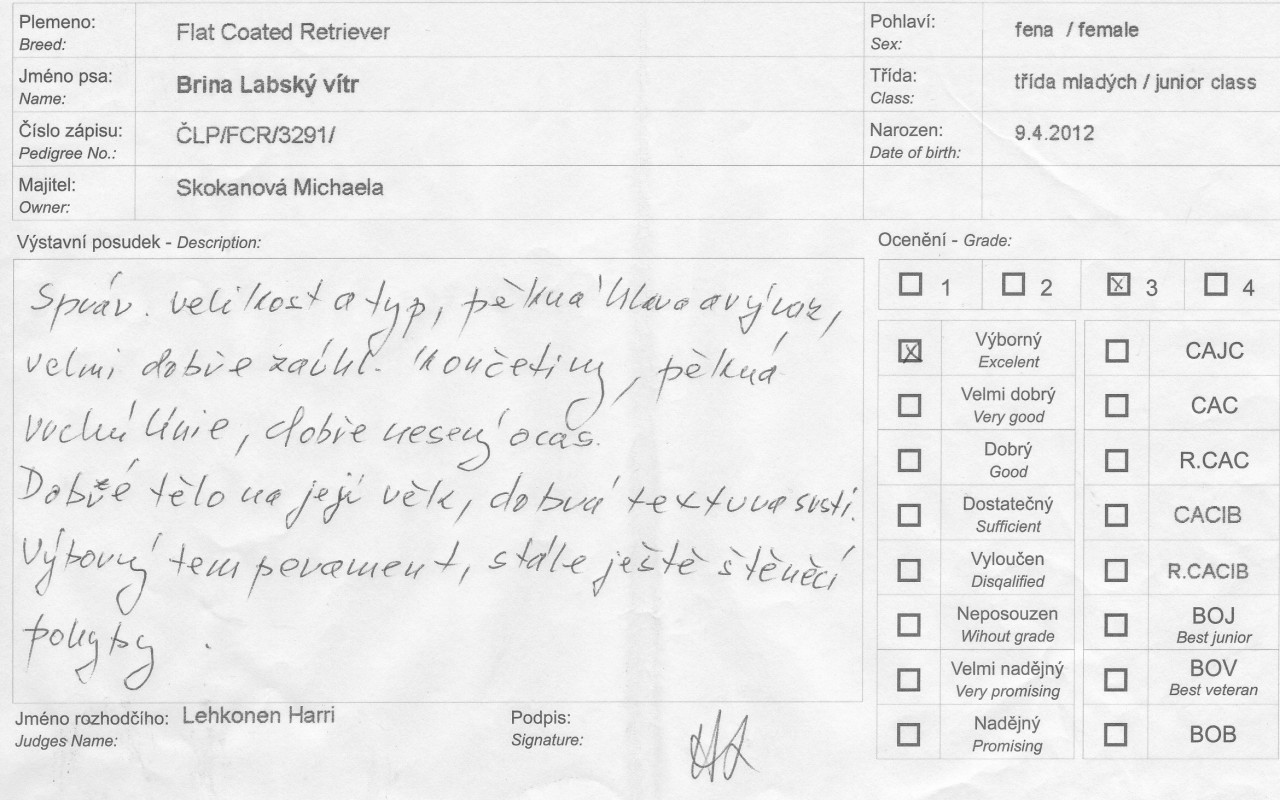 Plemeno: Flat Coated Retriever Pohlaví: fena / female
Breed: Sex:
Jméno psa: Brina Labský vítr Třída: třída mladých / junior class
Name: Class:
Číslo zápisu: ČLP/FCR/3291/ Narozen: 9.4.2012
Pedigree No.: Date of birth:
Majitel: Skokanová Michaela
Owner:
Výstavní posudek - Description:
Správ. velikost a typ, pěkná hlava a výraz,
velmi dobře zaúhl. končetiny, pěkná
vrchní linie, dobře nesený ocas.
Dobré tělo na její věk, dobrá textura srsti.
Výborný temperament, stále ještě štěněcí
pohyby.
Jméno rozhodčího: Lehkonen Harri Podpis:
Judges Name: Signature:
Ocenění - Grade:
1 2 3 4
Výborný CAJC
Excelent
Velmi dobrý CAC
Very good
Dobrý R.CAC
Good
Dostatečný CACIB
Sufficient
Vyloučen R.CACIB
Disqalified
Neposouzen BOJ
Wihout grade Best junior
Velmi nadějný BOV
Very promising Best veteran
Nadějný BOB
Promising